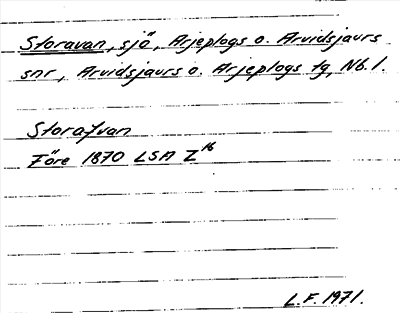 Storavan, sjö, Arjeplogs o. Arvidsjaurs
snr, Arvidsjaurs o. Arjeplogs tg, Nb. l.
Storafvan
Före 1870 LSA Z16
L.F. 1971.